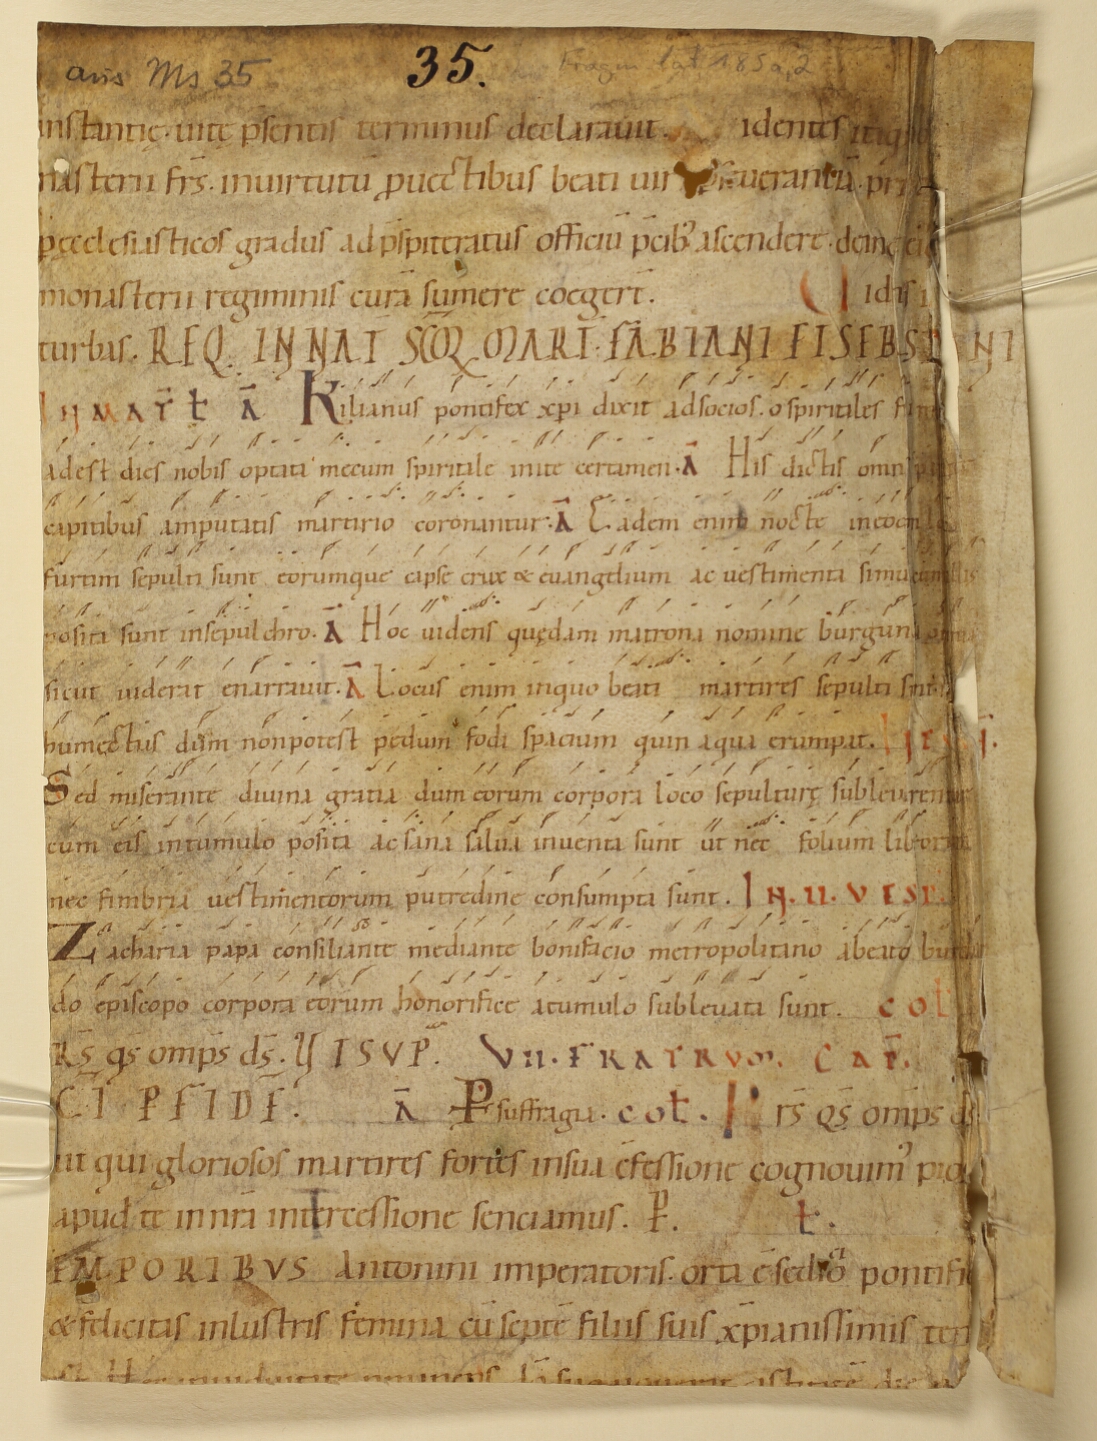 aus Ms 35 35. Fragm. lat. 185a,2
instantię. uitę p̄sentis terminus declarauit. identes itaq
nasterii fr̄s. in uirtutū ꝓuectibus beati uiri ꝑseuerantiā. pri
ꝑ ecclesiasticos gradus ad p̄sbiteratus officiū p̄cib; ascendere. deinde
monasterii regiminis curā sumere coeger̄t. Uidi si
turbas. REQ. IN NAT̄ SCŌR MARṪ. FABIANI ET SEBASTIANI
IN MAT̄ L̄ Ā Kilianus pontifex xp̄i dixit ad socios. o spiritiles
adest dies nobis optata mecum spiritale inite certamen. Ā His dictis omnes
capitibus amputatis martirio coronantur. Ā Eadem enim nocte in eodem loco
furtim sepulti sunt eorumque capse crux & euangelium ac uestimenta simul cum illis
posita sunt in sepulchro. Ā Hoc uidens quędam matrona nomine burgunda
sicut uiderat enarrauit. Ā Locus enim in quo beati martires sepulti sunt
humectus dum non potest pedum fodi spacium quin aqua erumpat.
Sed miserante diuina gratia dum eorum corpora loco sepulturę subleuarentur
cum eis in tumulo posita ac sana salua inuenta sunt ut nec folium librorum
nec fimbria uestimentorum putredine consumpta sunt. IN. II. VESP.
Zacharia papa consiliante mediante bonifacio metropolitano a beato burchar
do episcopo corpora eorum honorifice a tumulo subleuata sunt. COL
R̄S q̄s omp̄s ds̄. UT SUP̄. VII. FRATRVM. CAP̄.
SC̄I P FIDĒ. Ā P suffragia. COL. P rs̄ q̄s omp̄s ds̄
ut qui gloriosos martires fortes in sua c̄fessione cognouim; pios
apud te in nr̄a intercessione senciamus. P̄. L.
TEMPORIBVS Antonini imperatoris. orta ē seditio pontificū
& felicitas inlustris femina cū septē filiis suis xp̄ianissimis